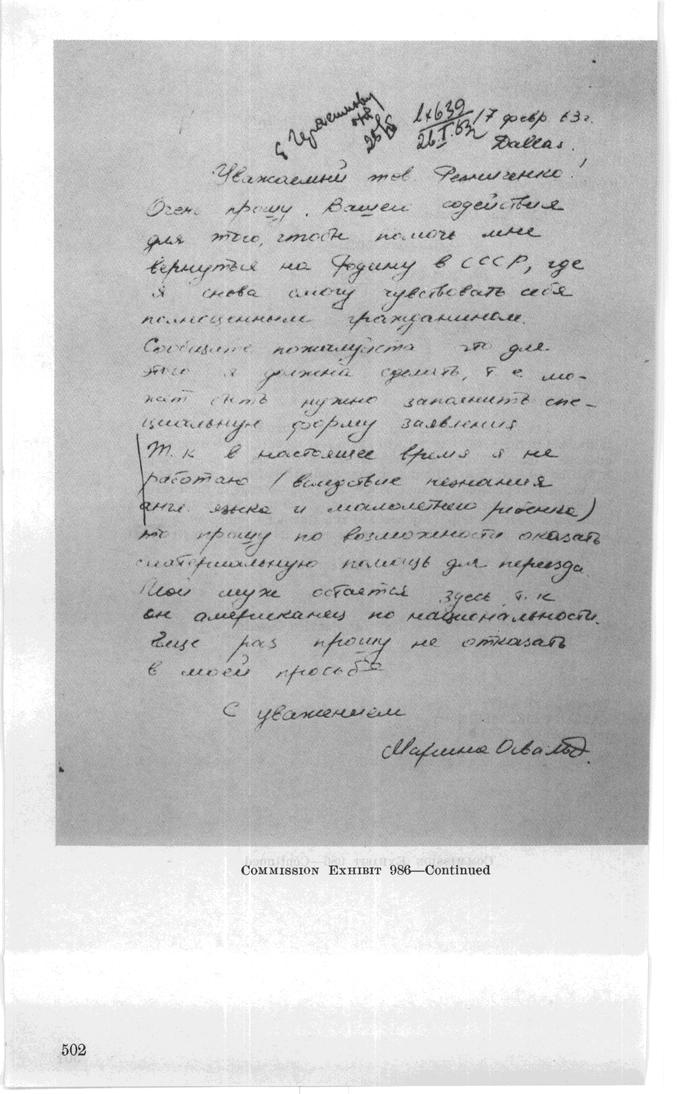 17 февр. 63 г.
Dallas.
Уважаемый тов. Резниченко!
Очень прошу Вашего содействия
для того, чтобы помочь мне
вернуться на Родину в СССР, где
я снова смогу чувствовать себя
полноценным гражданином.
Сообщите пожалуйста что для
этого я должна сделать, т.е. мо-
жет быть нужно заполнить спе-
циальную форму заявления
Т.к в настоящее время я не
работаю (вследствие незнания
англ. языка и малолетнего ребенка)
то прошу по возможности оказать
материальную помощь для переезда.
Мой муж остается здесь, т.к
он американец по национальности.
Еще раз прошу не отказать
в моей просьбе
С уважением
Марина Освальд.
COMMISSION EXHIBIT 986—Continued
502